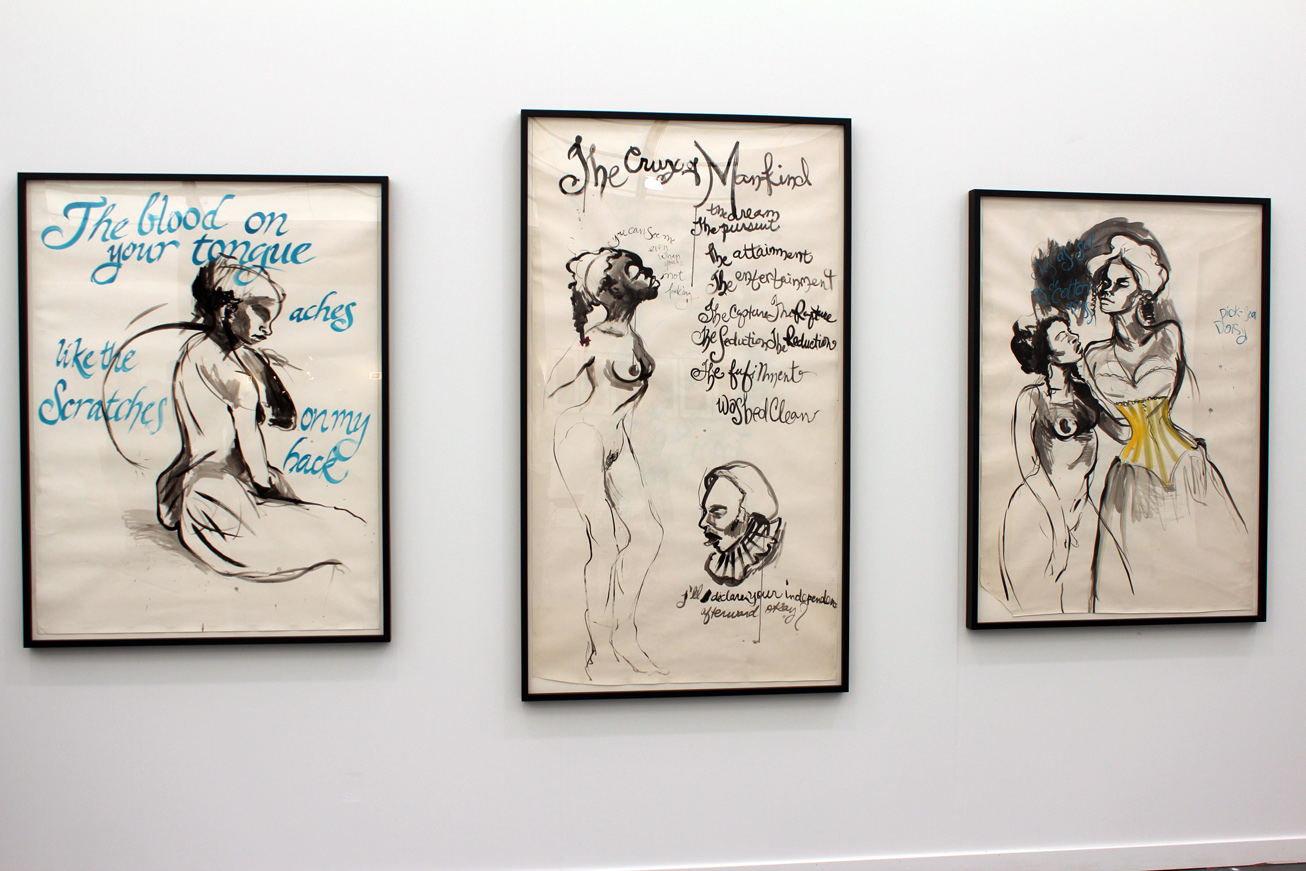 The blood on
your tongue
aches
like the
Scratches
on my
back
The Crux of Mankind
the dream
The pursuit
the attainment
The entertainment
The Capture The Rapture
The Seduction The Reduction
The fufillment
Washed Clean
you can see me
even
when
you're
not
I'll declare your independence
afterward okay?
Daisy